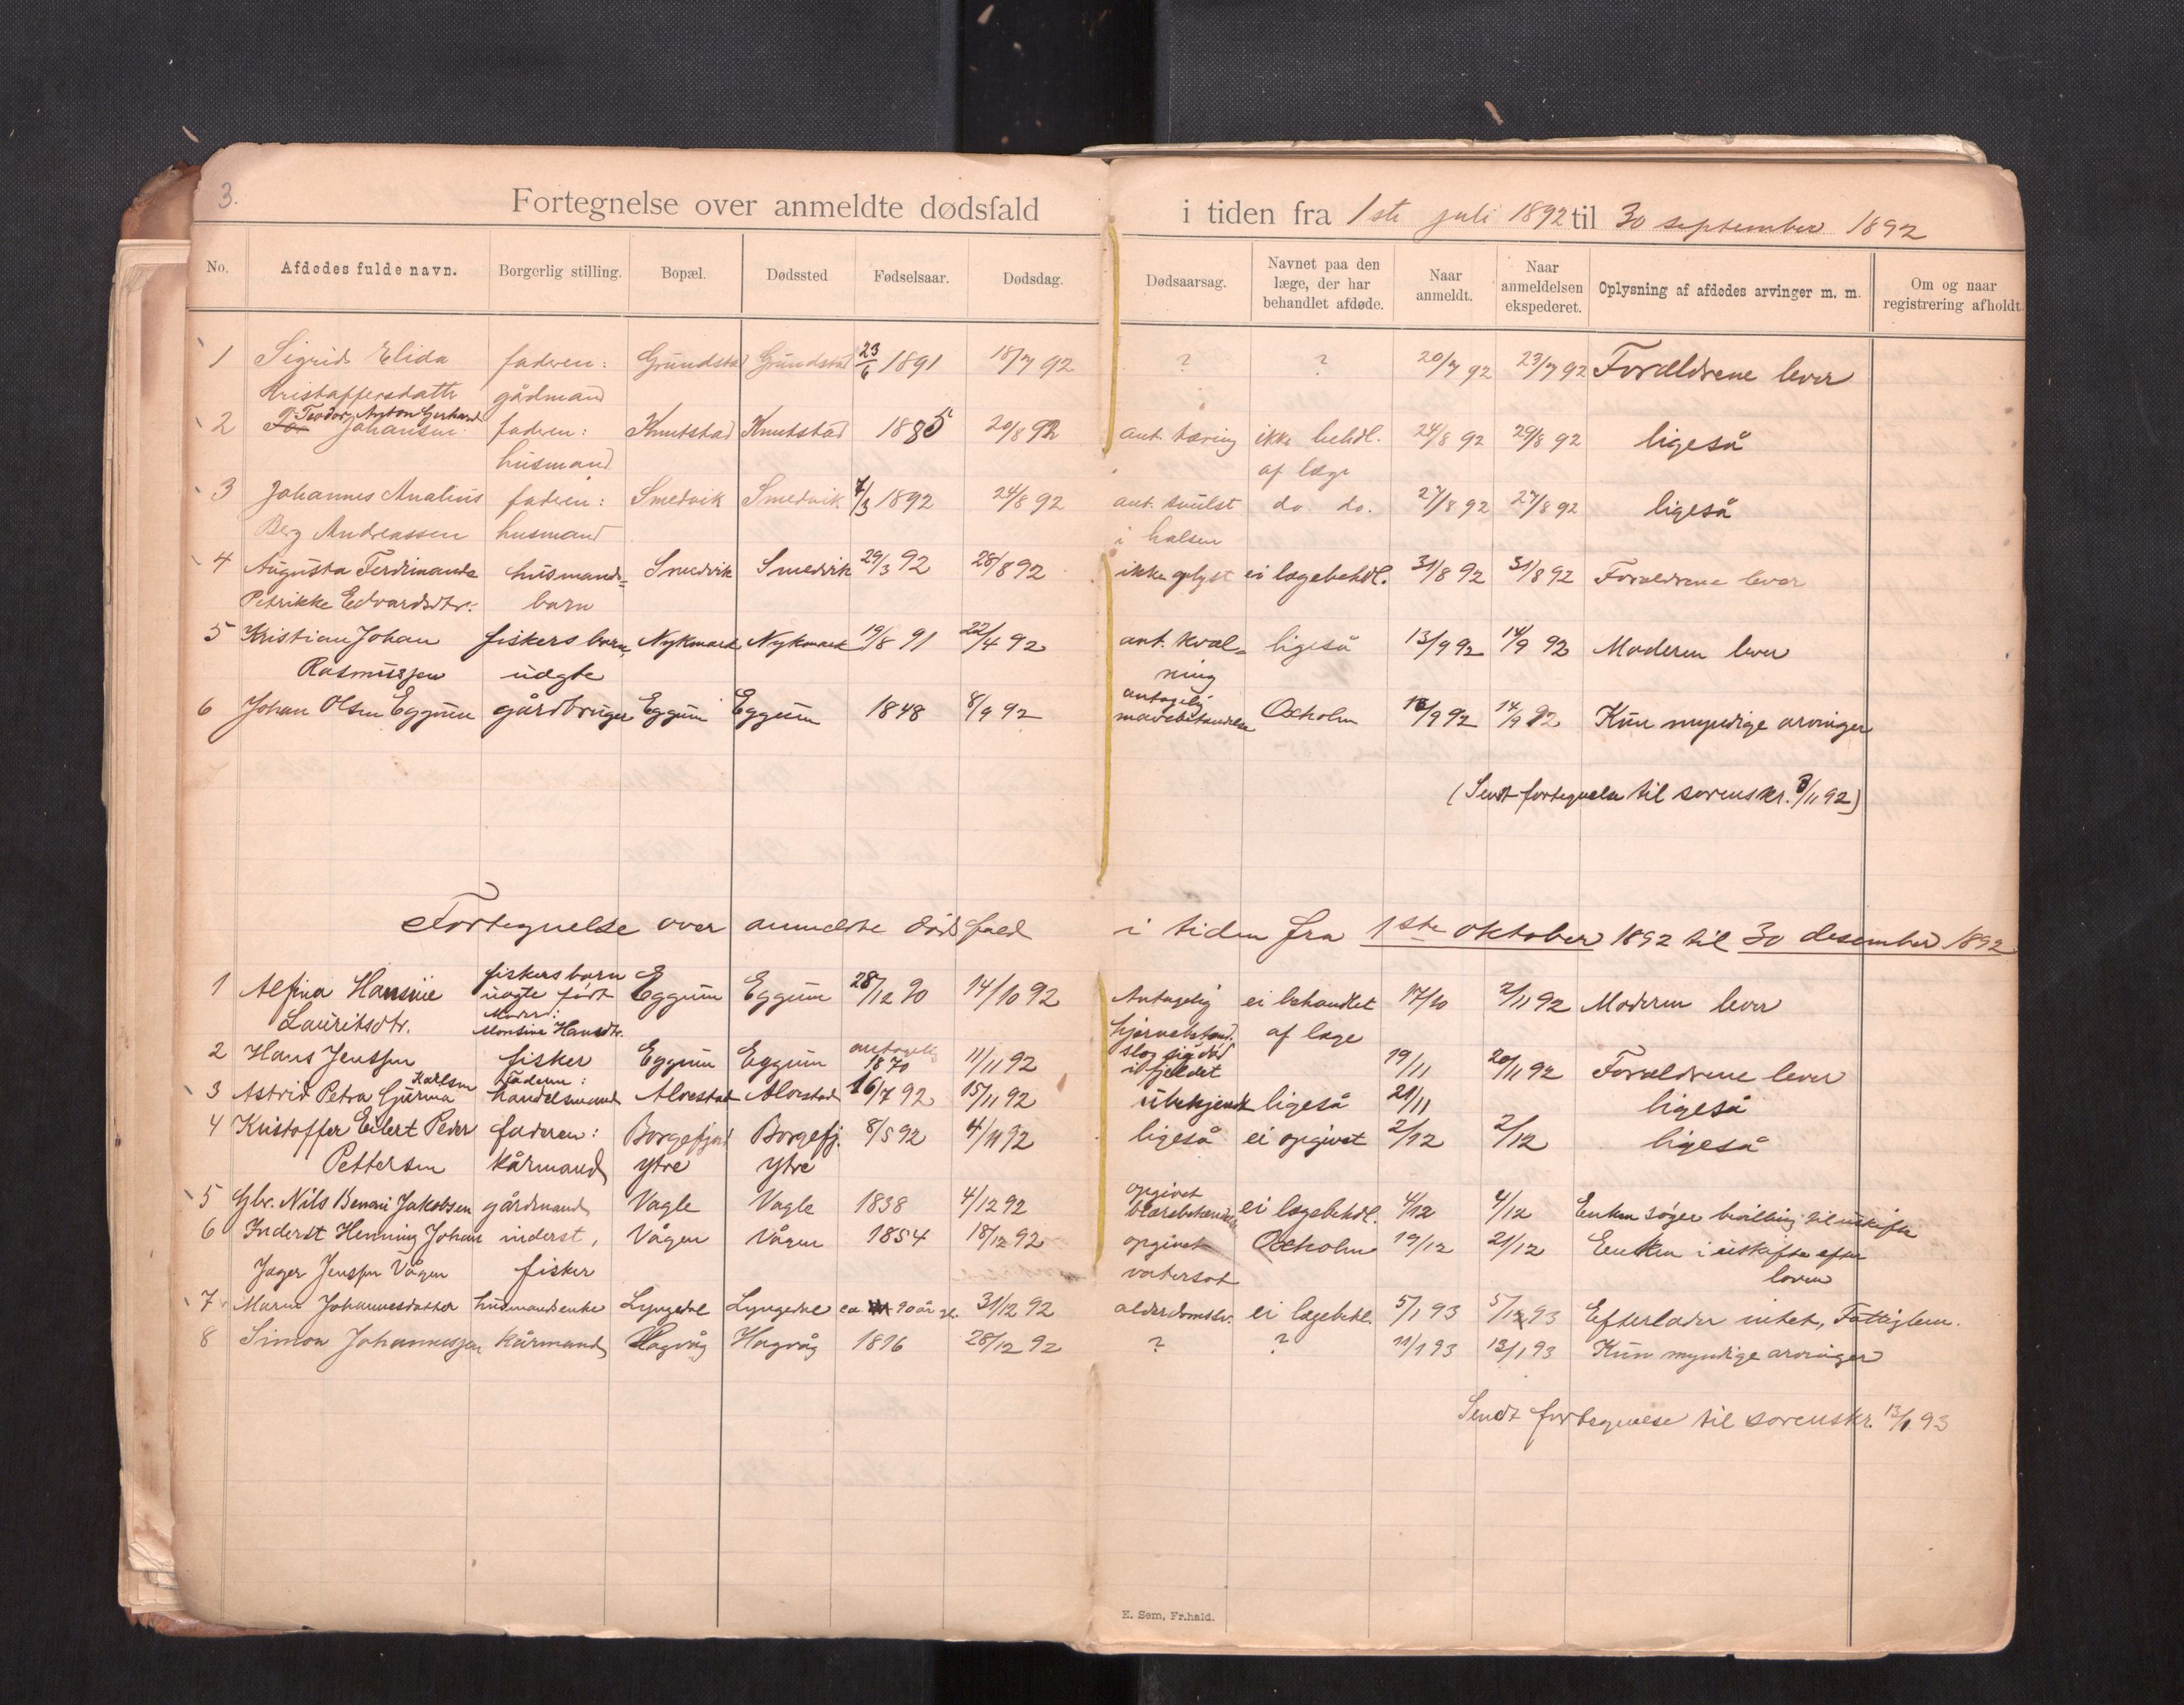 3.
Fortegnelse over anmeldte dødsfald i tiden fra 1ste juli 1892 til 30 september 1892
No. Afdødes fulde navn. Borgerlig stilling. Bopæl. Dødssted Fødselsaar. Dødsdag. Dødsaarsag. Navnet paa den læge, der har behandlet afdøde. Naar anmeldt. Naar anmeldelsen ekspederet. Oplysning af afdødes arvinger m. m. Om og naar registrering afholdt.
1 Sigrid Elida faderen: Grundstad Grundstad 23/6 1891 18/7 92 ? ? 20/7 92 23/7 92 Forældrene lever
Kristoffersdatte gådmand
Teodor Anton Gerhard
2 Johansen faderen: Knutstad Knutstad 1885 20/8 92 ant. tæring ikke behdl. 24/8 92 29/8 92 ligeså
husmand af læge
3 Johannes Analius faderen: Smedvik Smedvik 7/3 1892 24/8 92 ant. svulst do. do. 27/8 92 27/8 92 ligeså
Berg Andreassen husmand i halsen
4 Augusta Ferdinanda husmands= Smedvik Smedvik 29/3 92 28/8 92 ikke oplyst ei lægebehdl. 31/8 92 31/8 92 Forældrene lever
Petrikke Edvardsdtr. barn
5 Kristian Johan fiskers barn, Nykmark Nykmark 19/8 91 22/4 92 ant. kvæl= ligeså 13/9 92 14/9 92 Moderen lever
Rasmussen uægte ning
antagelig
6 Johan Olsen Eggum gårdbruger Eggum Eggum 1848 8/9 92 mavebetændelse Oxholm 13/9 92 14/9 92 Kun myndige arvinger
(Sendt fortegnelse til sorenskr. 3/11 92)
Fortegnelse over anmeldte dødsfald i tiden fra 1ste oktober 1892 til 30 desember 1892
fiskers barn
1 Alfina Hansine uægte født Eggum Eggum 28/12 90 14/10 92 Antagelig ei behandlet 17/10 2/11 92 Moderen lever
Moder:
Lauritsdtr. Monsine Hansdtr. hjernebetænd. af læge
antagelig slog sig død
2 Hans Jenssen fisker Eggum Eggum 1870 11/11 92 i fjeldet 19/11 20/11 92 Forældrene lever
Karlsen faderen:
3 Astrid Petra Gurina handelsmand Alvestad Alvestad 16/7 92 15/11 92 ubekjendt ligeså 21/11 ligeså
4 Kristoffer Eilert Peder faderen: Borgefjord Borgefj. 8/5 92 4/11 92 ligeså ei opgivet 2/12 2/12 ligeså
Pettersen kårmand ytre ytre
opgivet
5 Gbr. Nils Benoni Jakobsen gårdmand Vagle Vagle 1838 4/12 92 blærebetændelse ei lægebehdl. 4/12 4/12 Enken søger bevilling til uskifte
6 Inderst Henning Johan inderst, Vågen Vågen 1854 18/12 92 opgivet Oxholm 19/12 21/12 Enken i uskifte efter
Jager Jenssen Vågen fisker vatersot loven
7 Maren Johannesdatter husmandsenke Lyngedal Lyngedal ca 90 år gl. 31/12 92 alderdomssv. ei lægebehl. 5/1 93 5/1 93 Efterlader intet, Fattiglem.
8 Simon Johannessen kårmand Hagvåg Hagvåg 1816 28/12 92 ? ? 11/1 93 13/1 93 Kun myndige arvinger
Sendt fortegnelse til sorenskr. 13/1 93
E. Sem, Fr.hald.